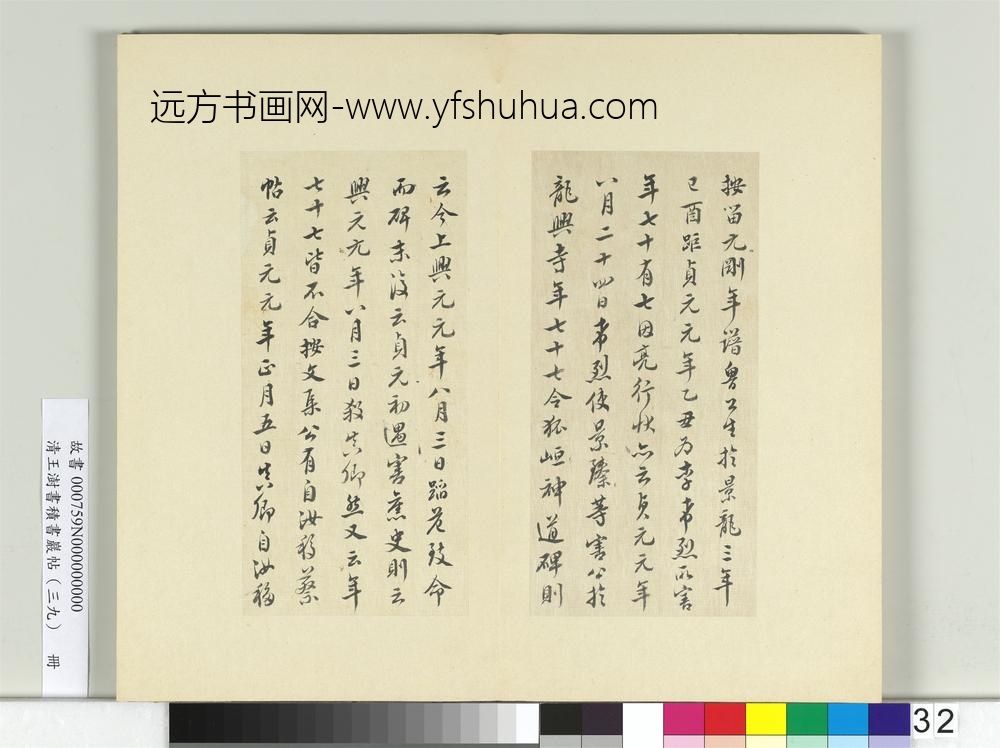 远方书画网-www.yfshuhua.com
按留元剛年譜魯公生於景龍三年
己酉距貞元元年乙丑為李希烈所害
年七十有七因亮行狀亦云貞元元年
八月二十四日希烈使景臻等害公於
龍興寺年七十七令狐峘神道碑則
云今上興元元年八月三日蹈危致命
而碑末後云貞元初遇害舊史則云
興元元年八月三日殺真卿然又云年
七十七皆不合按文集公有自汝移蔡
帖云貞元元年正月五日真卿自汝移
故書 000759N000000000
清王澍書積書巖帖（三九） 冊
32